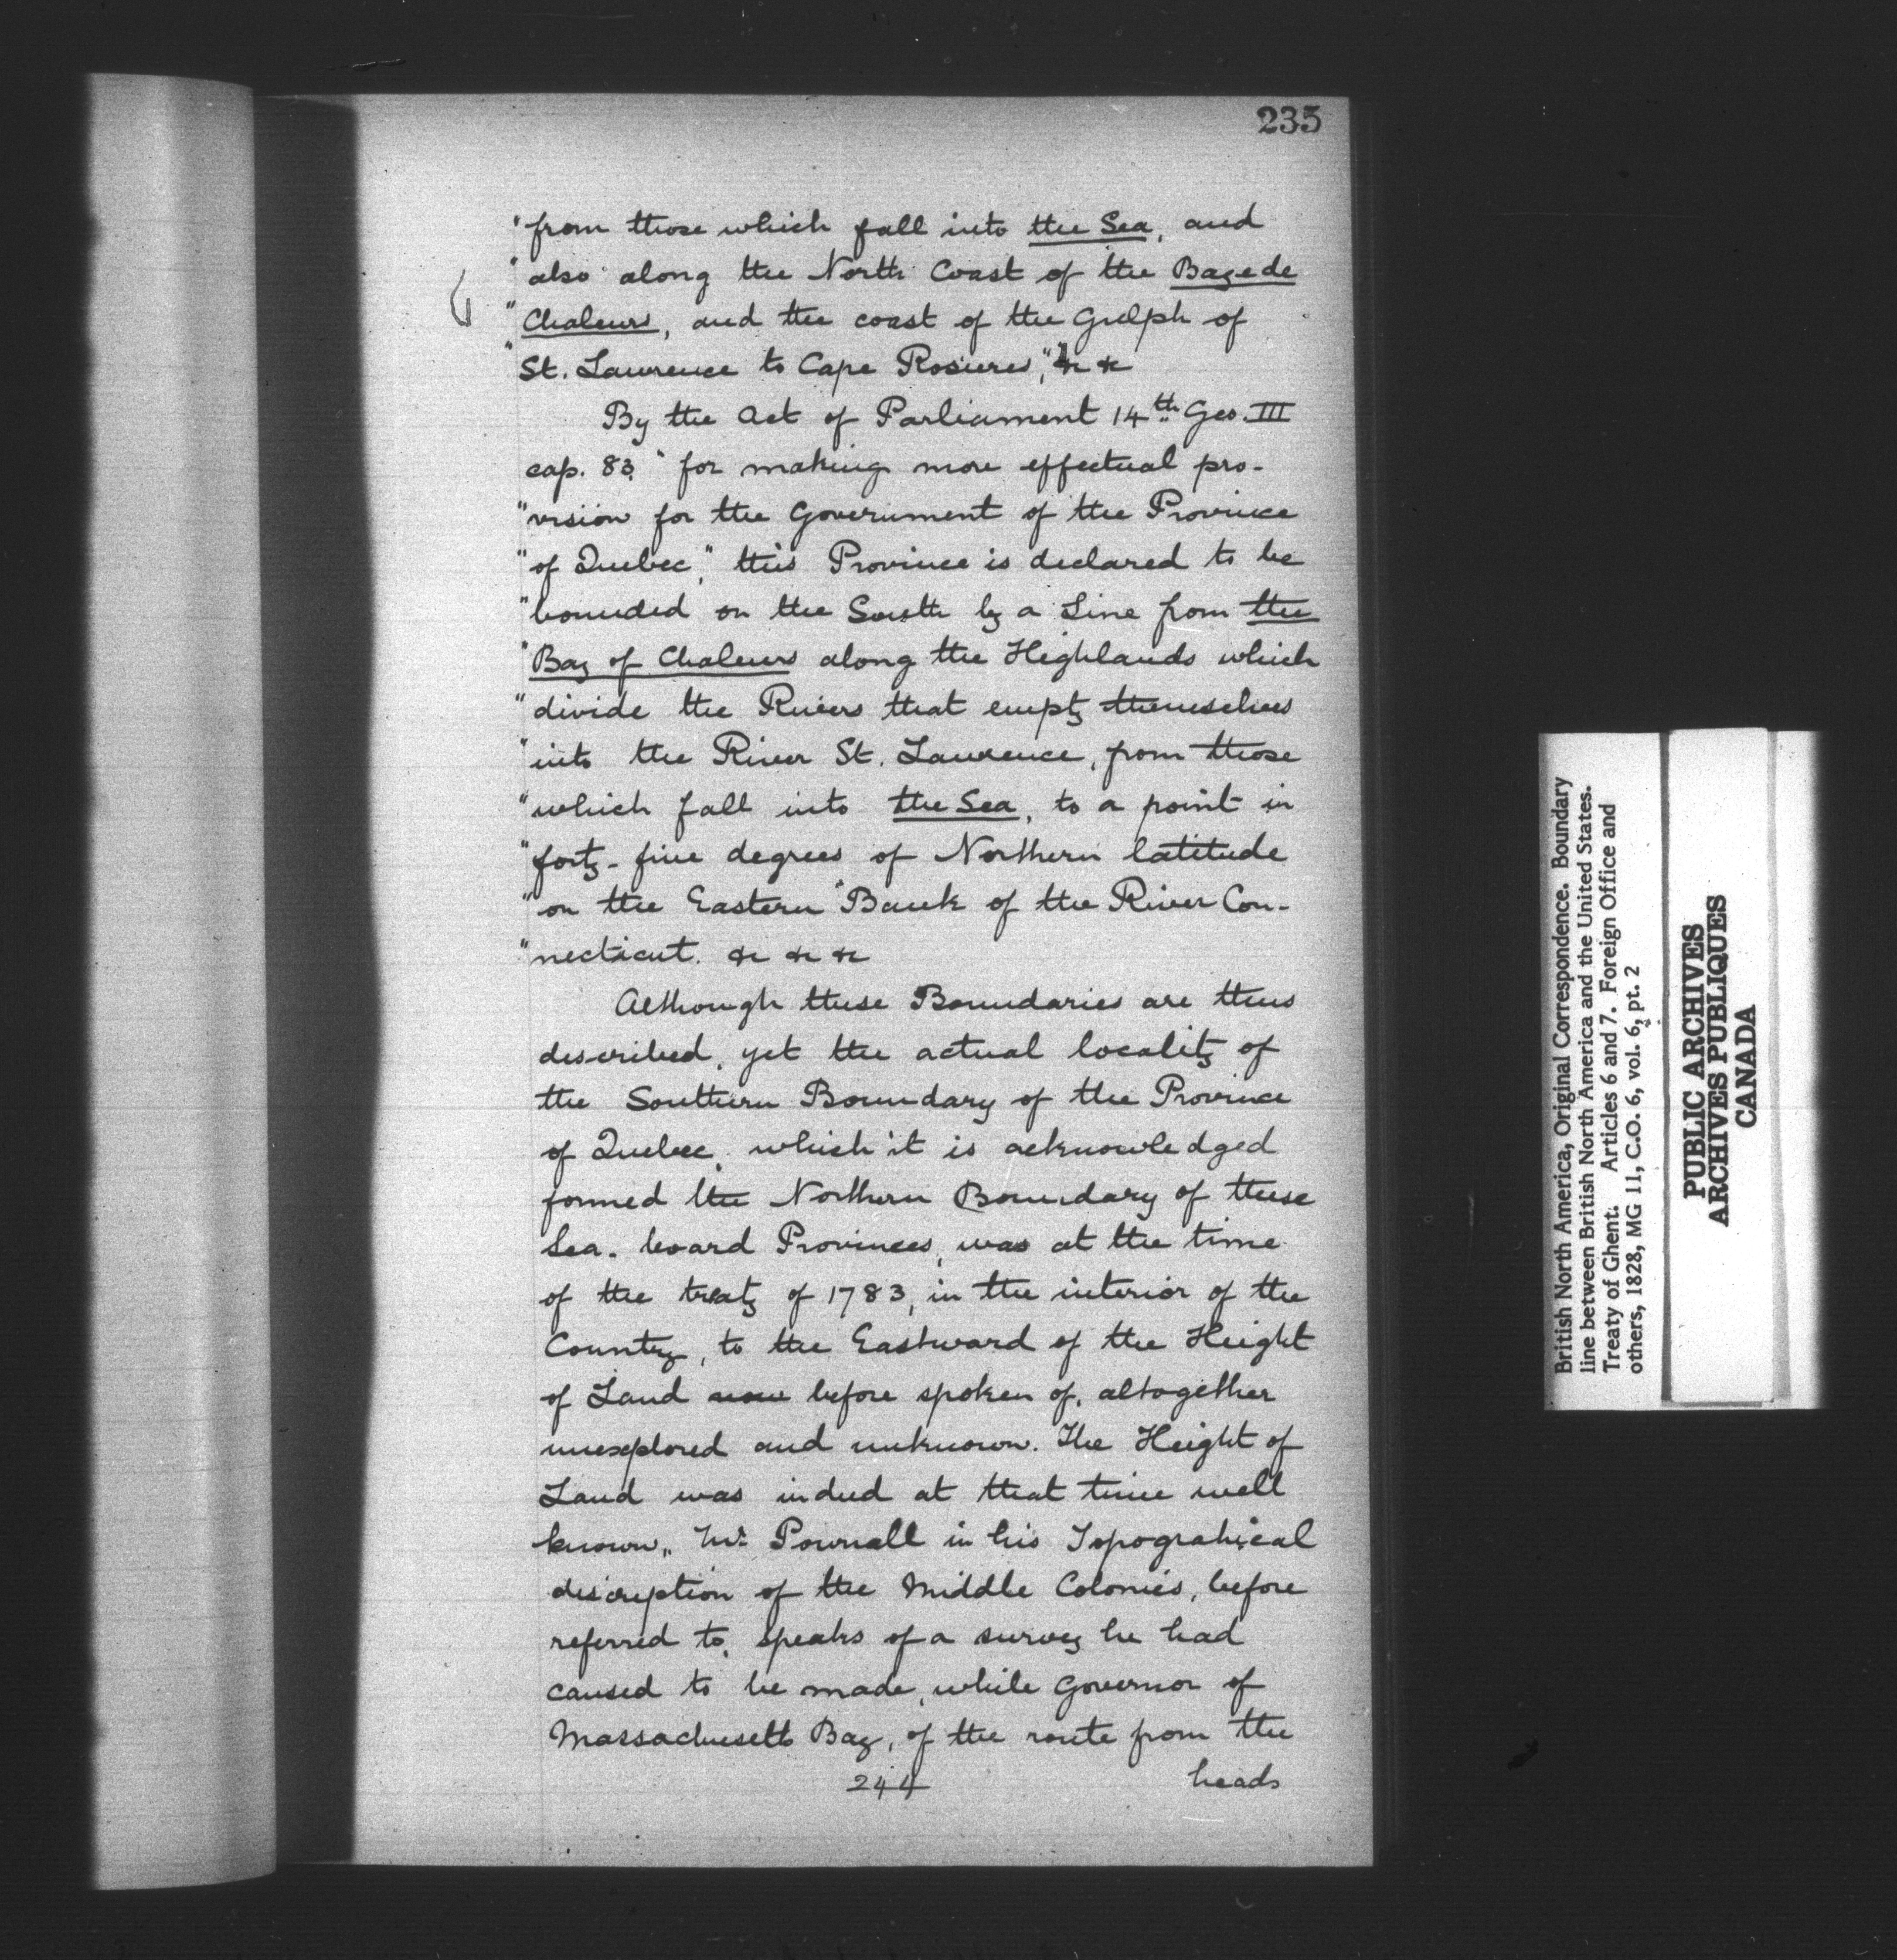 235
"from those which fall into the Sea, and
"also along the North Coast of the Baye de
"Chaleurs, and the coast of the Gulph of
"St. Lawrence to Cape Rosieres," &c &c
By the Act of Parliament 14th Geo. III
cap. 83. "for making more effectual pro-
"vision for the Government of the Province
"of Quebec," this Province is declared to be
"bounded on the South by a Line from the
"Bay of Chaleurs along the Highlands which
"divide the Rivers that empty themselves
"into the River St. Lawrence, from those
"which fall into the Sea, to a point in
"forty-five degrees of Northern latitude
"on the Eastern Bank of the River Con-
"necticut. &c &c &c
Although these Boundaries are thus
described, yet the actual locality of
the Southern Boundary of the Province
of Quebec, which it is acknowledged
formed the Northern Boundary of these
Sea-board Provinces, was at the time
of the treaty of 1783, in the interior of the
Country, to the Eastward of the Height
of Land now before spoken of, altogether
unexplored and unknown. The Height of
Land was indeed at that time well
known,, Mr Pownall in his Topograhical
discription of the Middle Colonies, before
referred to, speaks of a survey he had
caused to be made, while Governor of
Massachusetts Bay, of the route from the
244 heads
British North America, Original Correspondence. Boundary
line between British North America and the United States.
Treaty of Ghent. Articles 6 and 7. Foreign Office and
others, 1828, MG 11, C.O. 6, vol. 6, pt. 2
PUBLIC ARCHIVES
ARCHIVES PUBLIQUES
CANADA